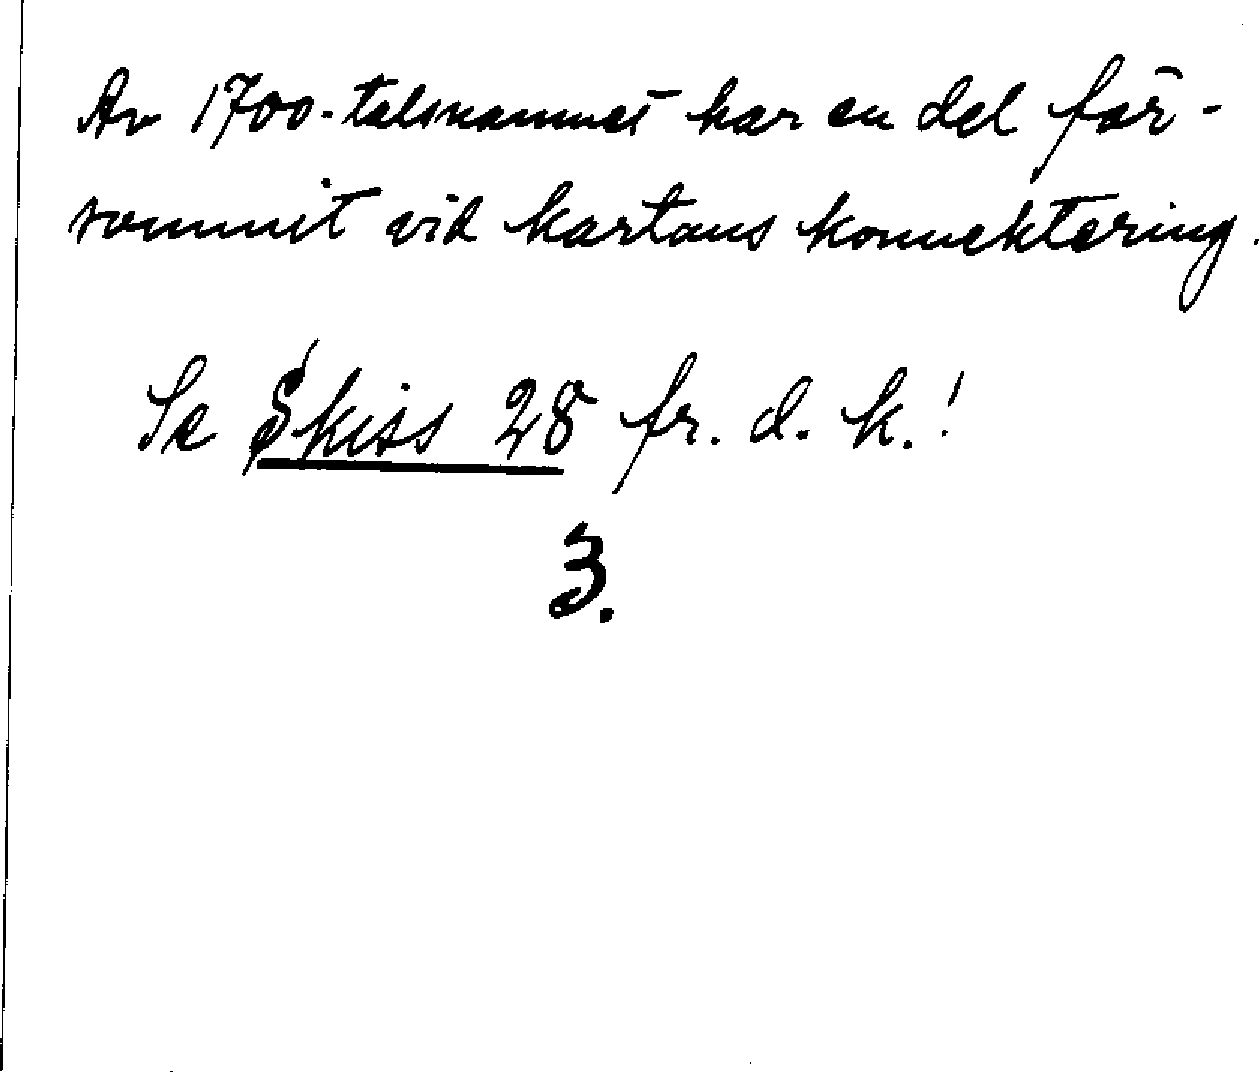 Av 1700-talsnamnet har en del för-
svunnit vid kartans konnektering.
Se Skiss 28 fr. d. k.!
3.